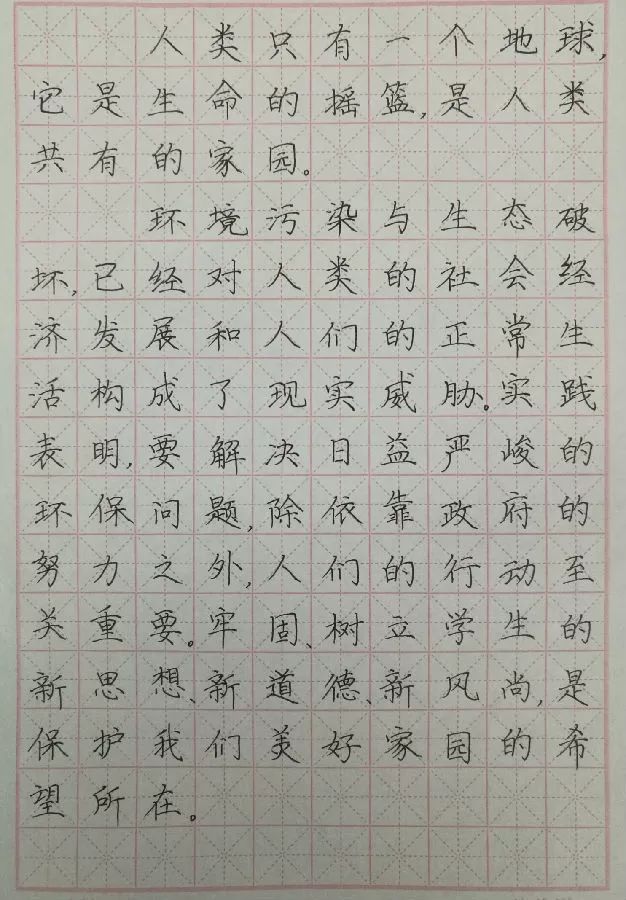 人类只有一个地球,
它是生命的摇篮,是人类
共有的家园。
环境污染与生态破
坏,已经对人类的社会经
济发展和人们的正常生
活构成了现实威胁。实践
表明,要解决日益严峻的
环保问题,除依靠政府的
努力之外,人们的行动至
关重要。牢固、树立学生的
新思想、新道德、新风尚,是
保护我们美好家园的希
望所在。